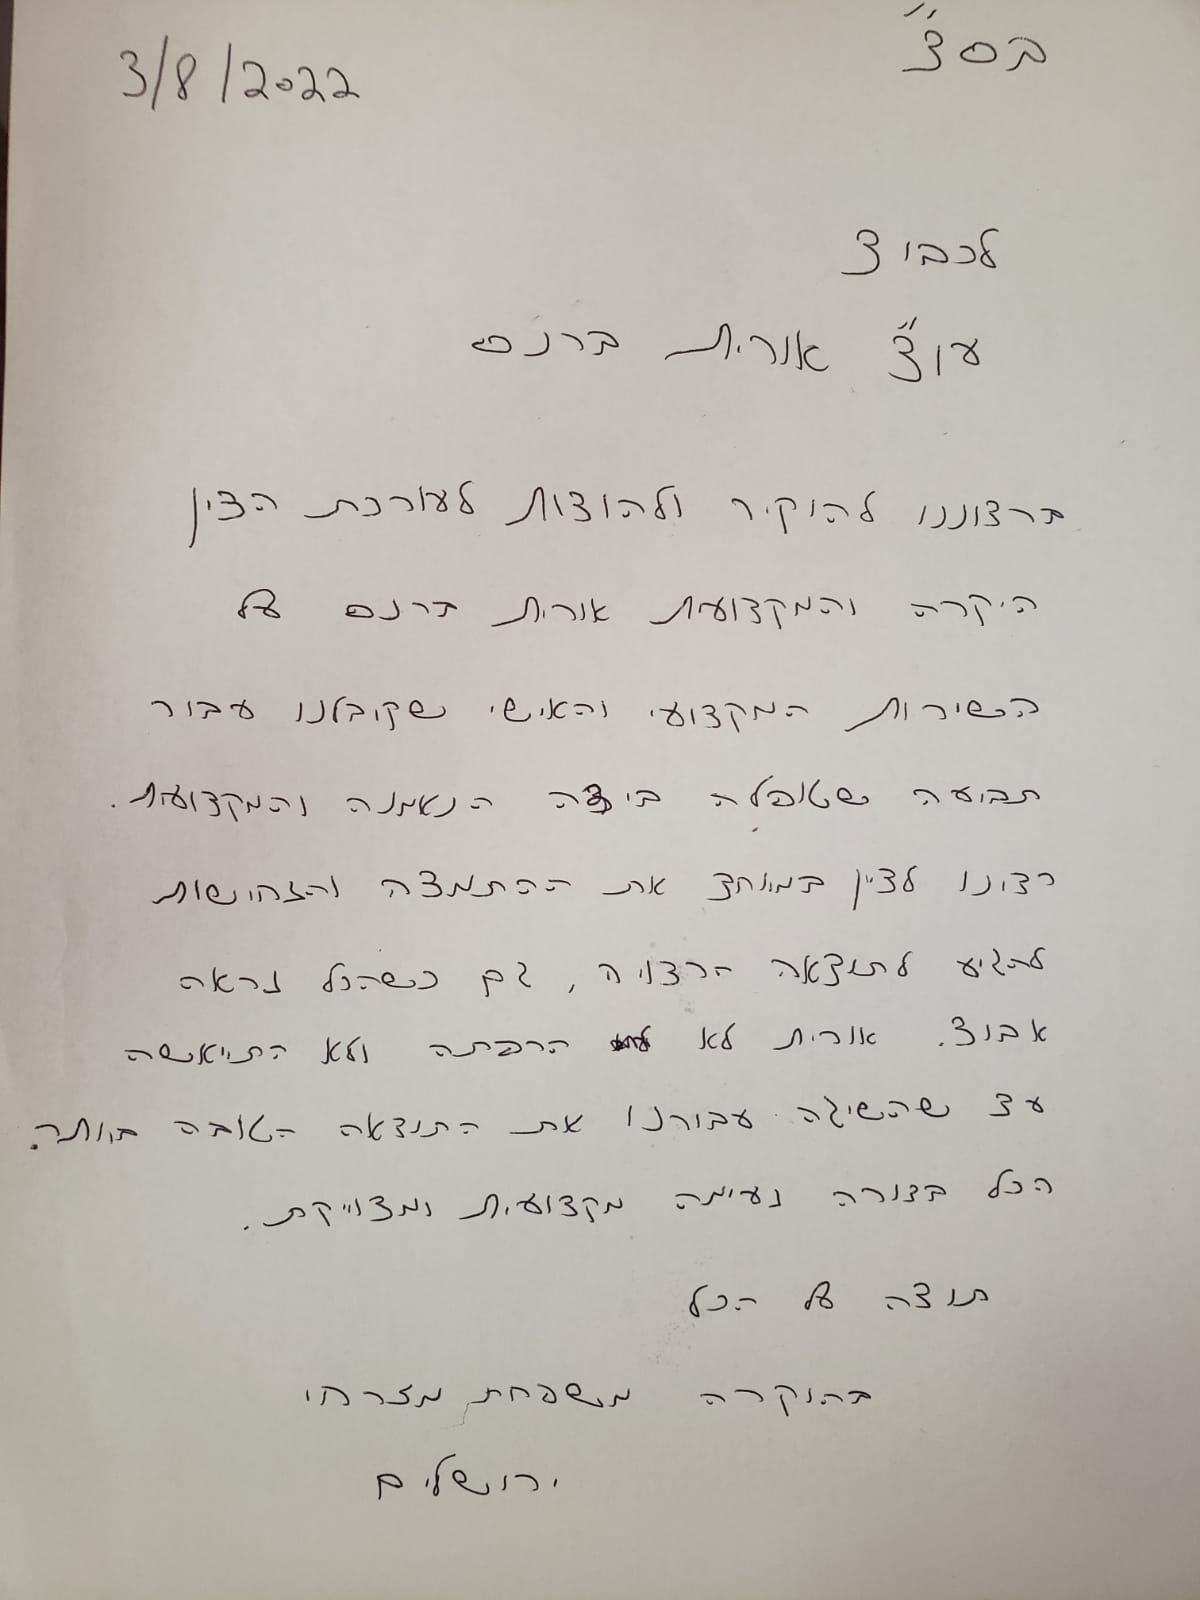 בס״ד
3/8/2022
לכבוד
עו״ד אורית ברנס
ברצוננו להוקיר ולהודות לעורכת הדין
היקרה והמקצועית אורית ברנס על
השירות המקצועי והאישי שקובלנו עבור
תביעה שטופלה בידה הנאמנה והמקצועית.
רצינו לציין במיוחד את ההתמדה והנחישות
להגיע לתוצאה הרצויה, גם כשהכל נראה
אבוד. אורית לא הרפתה ולא התייאשה
עד שהשיגה עבורנו את התוצאה הטובה ביותר.
הכל בצורה נעימה מקצועית ומדוייקת.
תודה על הכל
בהוקרה משפחת מזרחי
ירושלים